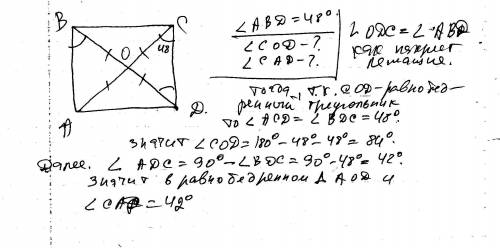 B C
O 48
A D.
∠ABD = 48°
∠COD - ?
∠CAD - ?
∠ODC = ∠ABD
как накрест
лежащие.
тогда, т.к. COD - равнобед-
ренный треугольник
то ∠ACD = ∠BDC = 48°.
значит ∠COD = 180° - 48 - 48° = 84°.
Далее. ∠ADC = 90° - ∠BDC = 90° - 48° = 42°.
значит в равнобедренном Δ AOD и
∠CAD = 42°